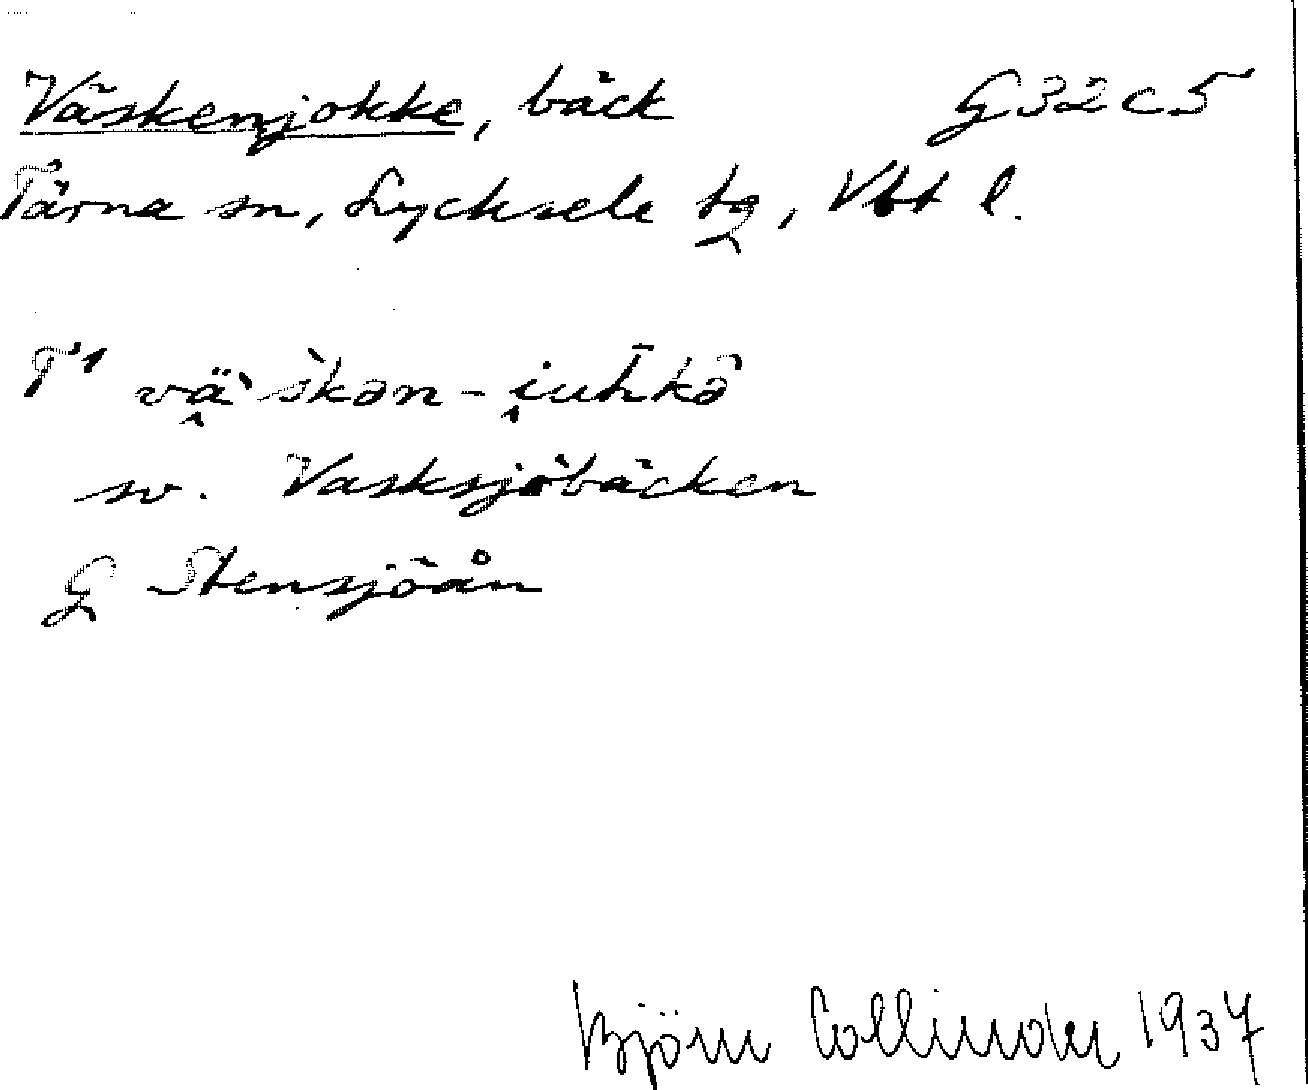 Väskenjokke, bäck G32c5
Tärna sn, Lycksele tg, Vbt l.
T1 vä̭ˋškən-i̭uh̄kə̂
sv. Vasksjöbäcken
G Stensjöån
Björn Collinder 1937